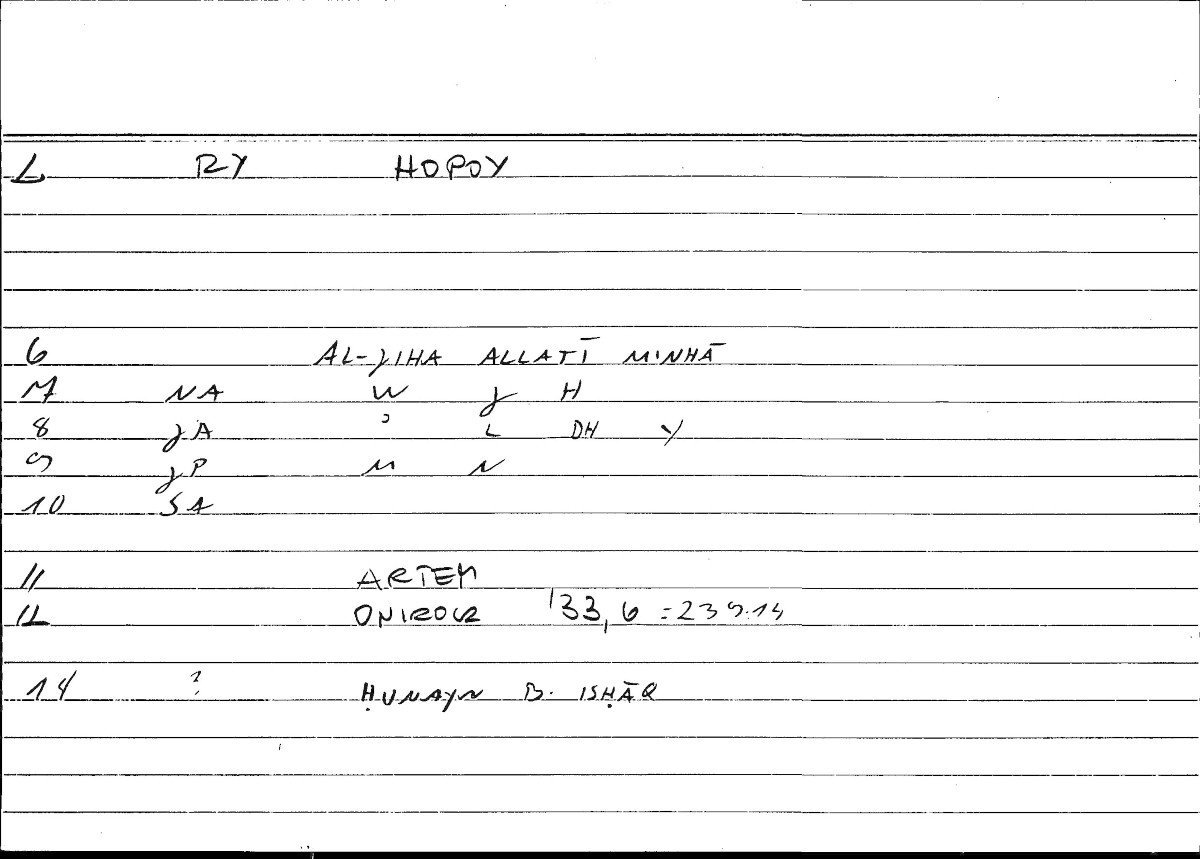 L RY HOPOY
6 AL-JIHA ALLATĪ MINHĀ
7 NA W J H
8 JA ʾ L DH Y
9 JP M N
10 SA
11 ARTEM
12 ONIROCR 133, 6 = 239.14
14 ? ḤUNAYN B. ISḤĀQ